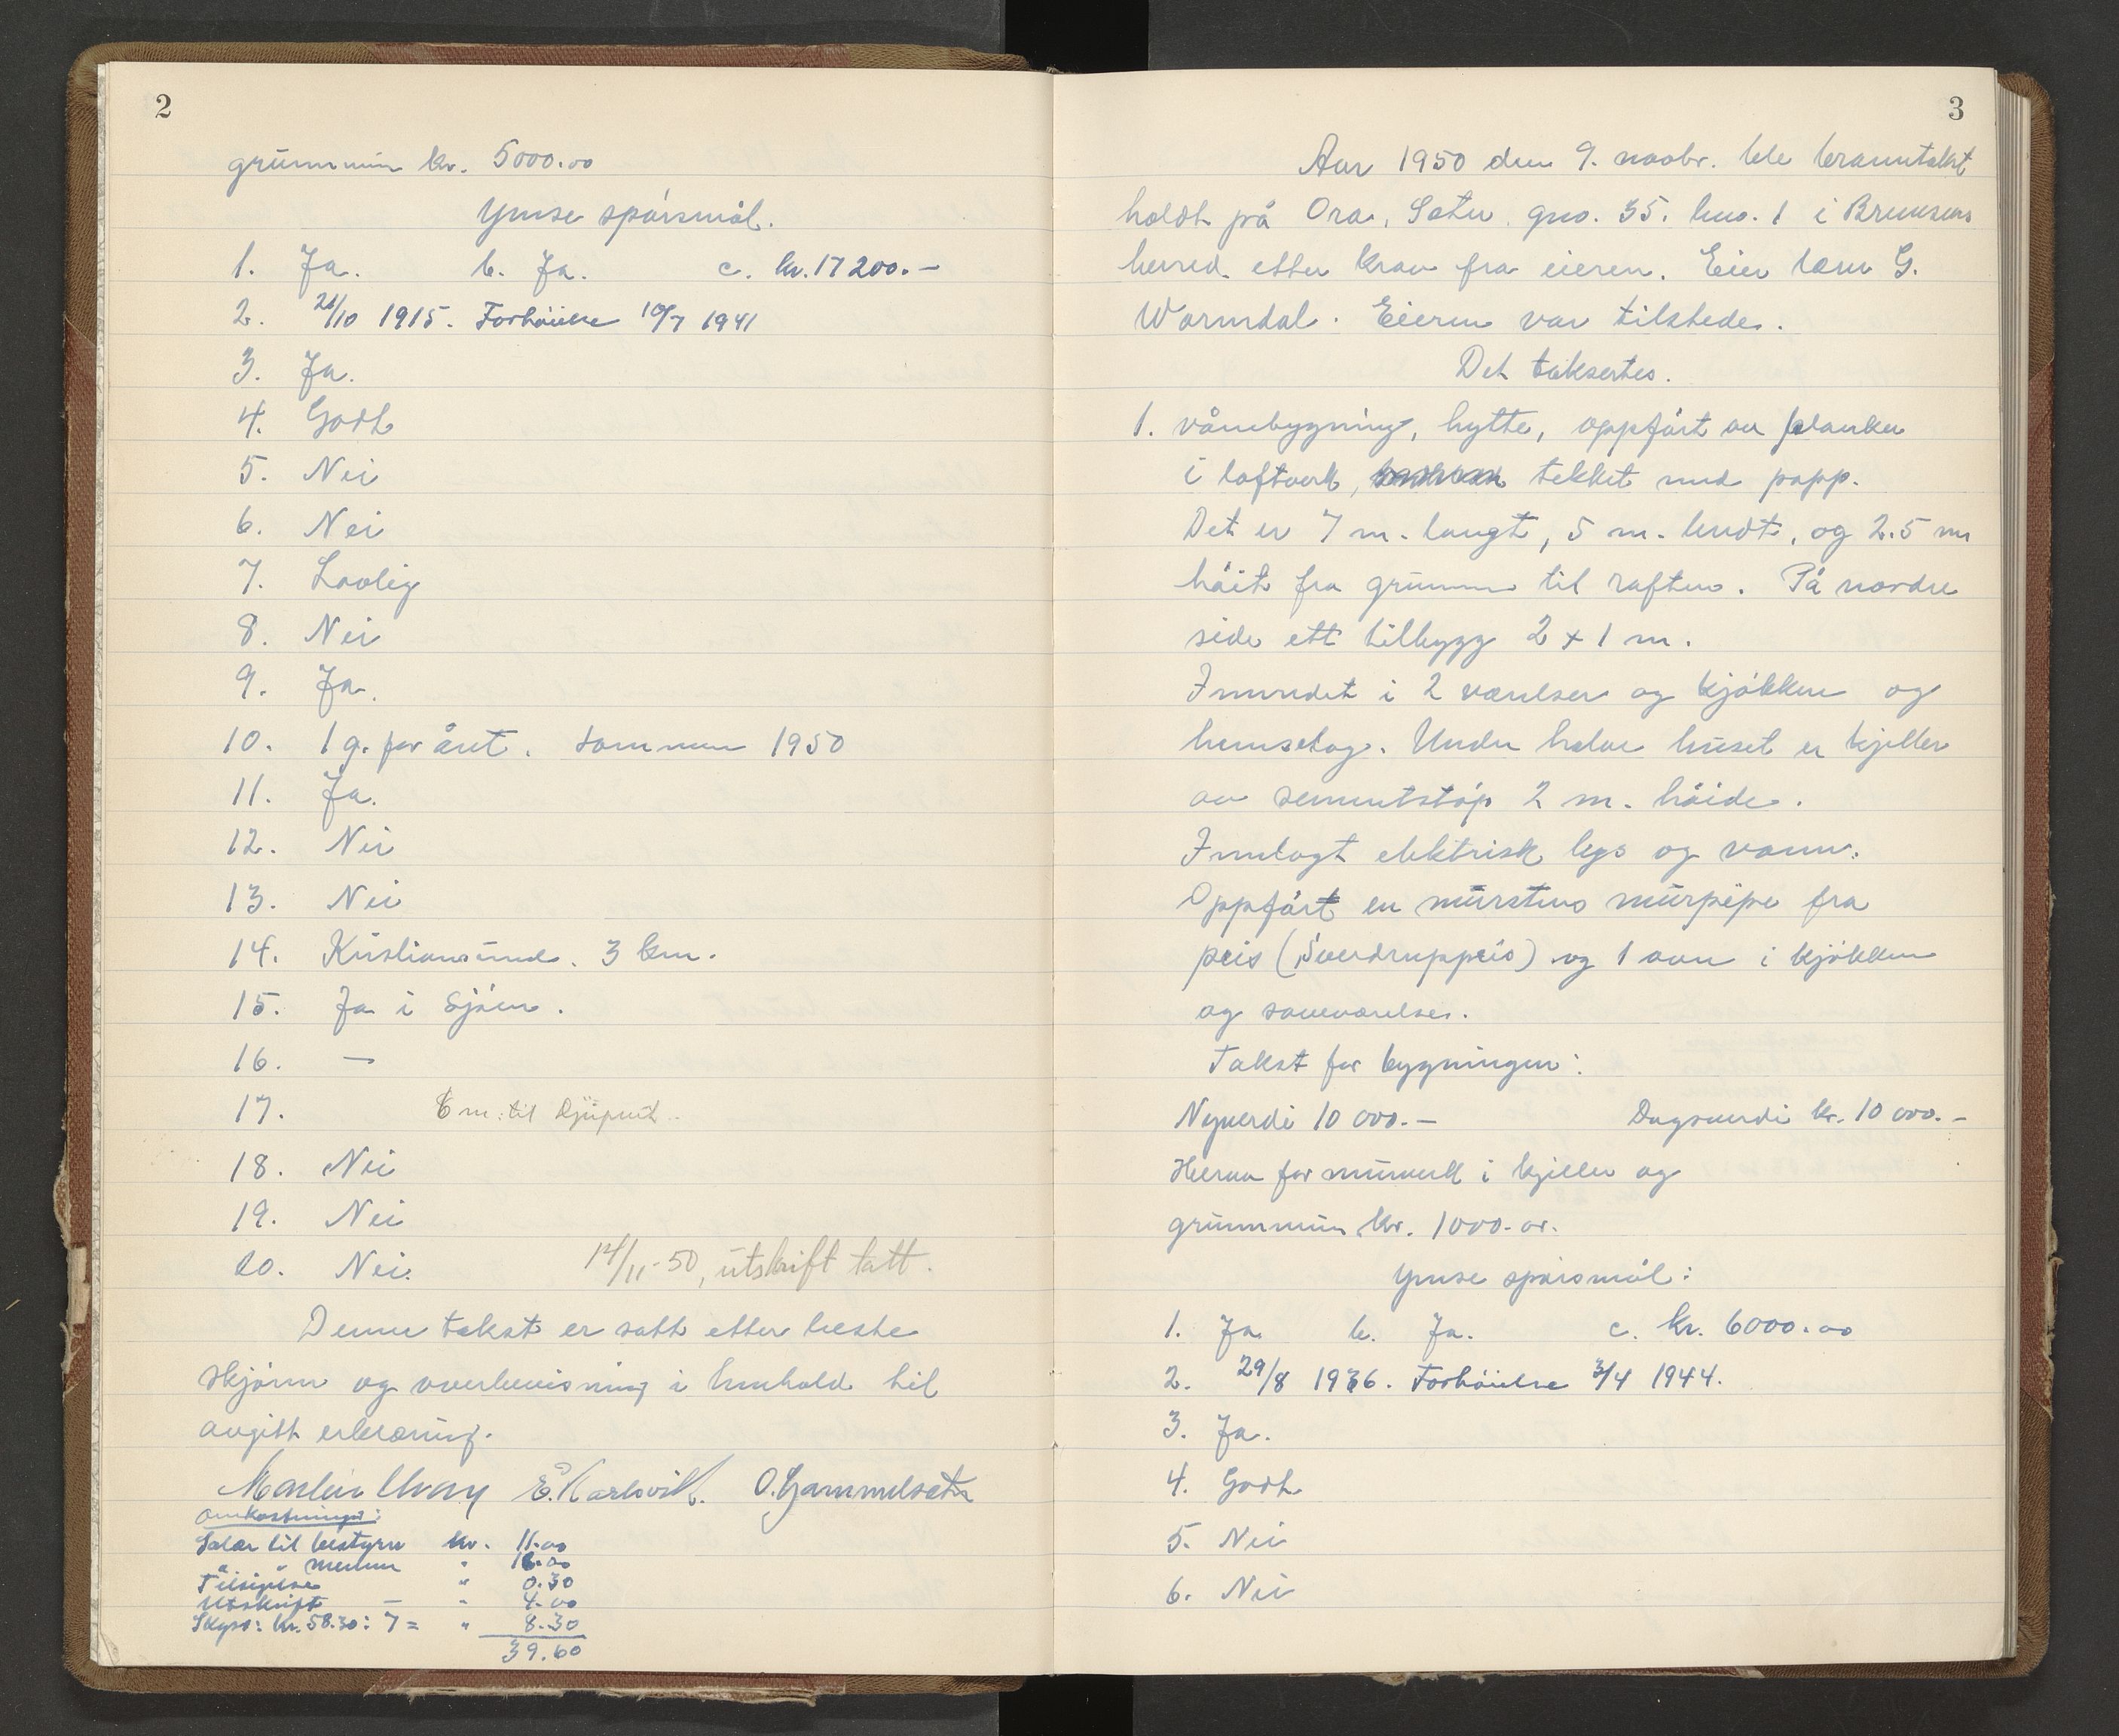 2
grunnmur kr. 5000.00
Ymse spørsmål.
1. Ja. b. Ja. c. kr. 17200.-
2. 21/10 1915. Forhøielse 10/7 1941
3. Ja.
4. Godt
5. Nei
6. Nei
7. Lovlig
8. Nei
9. Ja.
10. 1 g. for året. sommeren 1950
11. Ja.
12. Nei
13. Nei
14. Kristiansund. 3 km.
15. Ja i sjøen.
16. —
17. 6 m. til
18. Nei
19. Nei
20. Nei. 14/11-50, utskrift tatt.
Denne takst er satt etter beste
skjønn og overbevisning i henhold til
avgitt erklæring.
Martin E. Karlsvik. O. Gammelsæter
Omkostninger:
Salær til bestyrer kr. 11.00
" " mennene " 16.00
Tilsigelse " 0.30
Utskrift — " 4.00
Skyss: kr. 58.30: 7 = " 8.30
39.60
3
Aar 1950 den 9. novbr. ble branntakst
holdt på Ora, Sæter, gno. 35. bno. 1 i Bremsnes
herred etter krav fra eieren. Eier G.
Wormdal. Eieren var tilstede.
Det taksertes.
1. vånebygning, hytte, oppført av planker
i laftverk, tekket med papp.
Det er 7 m. langt, 5 m. bredt, og 2.5 m
høit fra grunnen til raften. På nordre
side ett tilbygg 2 x 1 m.
Innredet i 2 værelser og kjøkken og
hemsetag. Under halve huset er kjeller
av sementstøp 2 m. høide.
Innlagt elektrisk lys og vann.
Oppført en murstens murpipe fra
peis (Sverdruppeis) og 1 ovn i kjøkken
og soveværelse.
Takst for bygningen:
Nyverdi 10 000.- Dagsverdi kr. 10 000.-
Herav for murverk i kjeller og
grunnmur kr. 1000.00.
Ymse spørsmål:
1. Ja b. Ja. c. kr. 6000.00
2. 29/8 1936. Forhøielse 3/4 1944.
3. Ja.
4. Godt
5. Nei
6. Nei